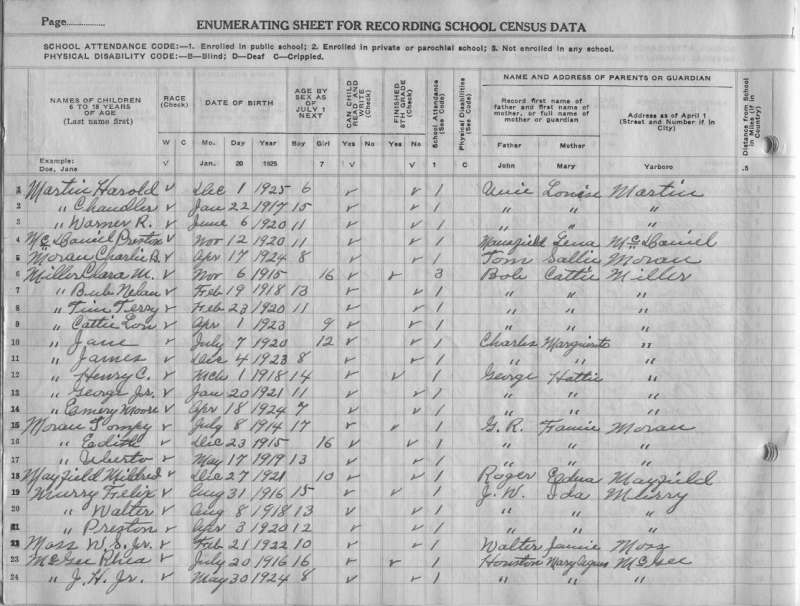 Page
ENUMERATING SHEET FOR RECORDING SCHOOL CENSUS DATA
SCHOOL ATTENDANCE CODE:—1. Enrolled in public school; 2. Enrolled in private or parochial school; 3. Not enrolled in any school.
PHYSICAL DISABILITY CODE:—B—Blind; D—Deaf C—Crippled.
NAMES OF CHILDREN 6 TO 18 YEARS OF AGE (Last name first)
RACE (Check)
DATE OF BIRTH
AGE BY SEX AS OF JULY 1 NEXT
CAN CHILD READ AND WRITE (Check)
FINISHED 8TH GRADE (Check)
School Attendance (See Code)
Physical Disabilities (See Code)
NAME AND ADDRESS OF PARENTS OR GUARDIAN
Record first name of father and first name of mother, or full name of mother or guardian
Address as of April 1 (Street and Number if in City)
Distance from School in Miles (if in Country)
W C Mo. Day Year Boy Girl Yes No Yes No Father Mother
Example: Doe, Jane V Jan. 20 1925 7 V V 1 C John Mary Yarboro .5
1 Martin Harold v Dec 1 1925 6 v v 1 Louise Martin
2 " Chandler v Jan 22 1917 15 v v 1 " " "
3 " Warner R. v June 6 1920 11 v v 1 " " "
4 McDaniel Preston v Nov 12 1920 11 v v 1 Mansfield Lena McDaniel
5 Moran Charlie B. v Apr 17 1924 8 v v 1 Tom Sallie Moran
6 Miller Clara M. v Nov 6 1915 16 v v 3 Bob Cattie Miller
7 " Bub Nolan v Feb 19 1918 13 v v 1 " " "
8 " Tim Terry v Feb 23 1920 11 v v 1 " " "
9 " Cattie Lou v Apr 1 1923 9 v v 1 " " "
10 " Jane v July 7 1920 12 v v 1 Charles Marguerite "
11 " James v Dec 4 1923 8 v v 1 " " "
12 " Henry C. v Mch 1 1918 14 v v 1 George Hattie "
13 " George Jr. v Jan 20 1921 11 v v 1 " " "
14 " Emery Moore v Apr 18 1924 7 v v 1 " " "
15 Moran Pompy v July 8 1914 17 v v 1 G. R. Fannie Moran
16 " Eadith v Dec 23 1915 16 v v 1 " " "
17 " v May 17 1919 13 v v 1 " " "
18 Mayfield Mildred v Dec 27 1921 10 v v 1 Roger Edna Mayfield
19 Murry Felix v Aug 31 1916 15 v v 1 J. W. Ida Murry
20 " Walter v Aug 8 1918 13 v v 1 " " "
21 " Preston v Apr 3 1920 12 v v 1 " " "
22 Moss W. S. Jr. v Feb 21 1922 10 v v 1 Walter Jannie Moss
23 McGee Rhea v July 20 1916 16 v v 1 Houston Mary Agnes McGee
24 " J. H. Jr. v May 30 1924 8 v v 1 " " "